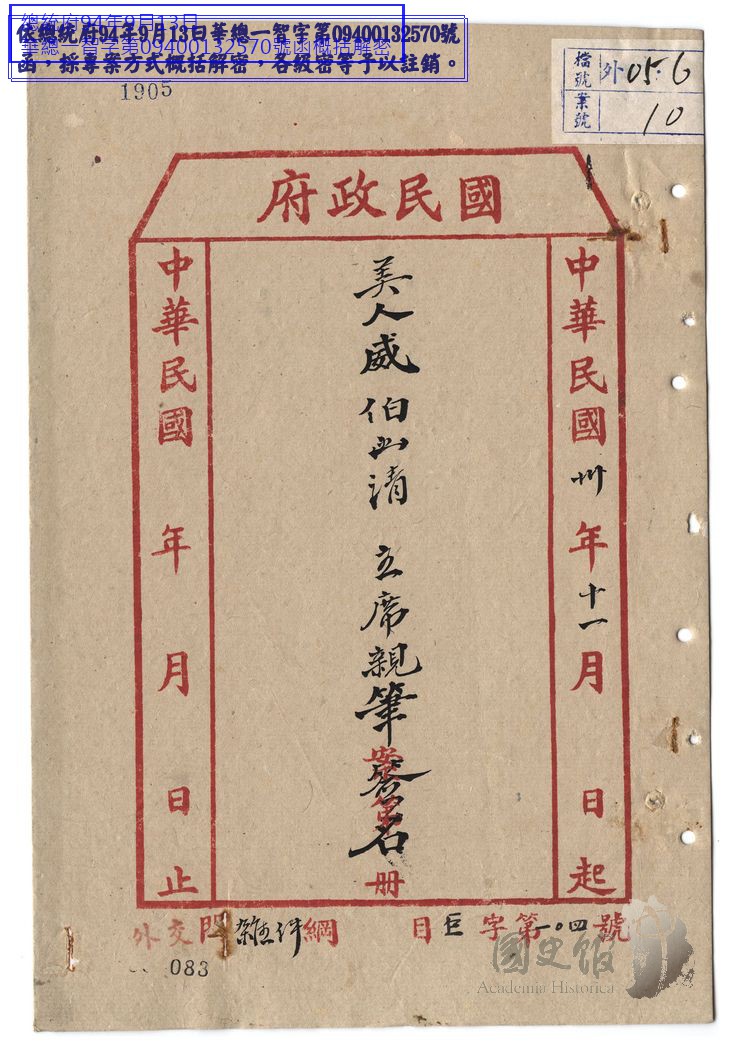 總統府94年9月13日
華總一智字第09400132570號函概括解密
依總統府94年9月13日華總一智字第09400132570號
函，採專案方式概括解密，各級密等予以註銷。
1905
檔號 外05.6
案號 10
國民政府
中華民國卅年十一月 日起
美人威伯出清 主席親筆簽名
案第 册
中華民國 年 月 日止
外交門雜件綱 目巨字第一〇四號
083
國史館
Academia Historica